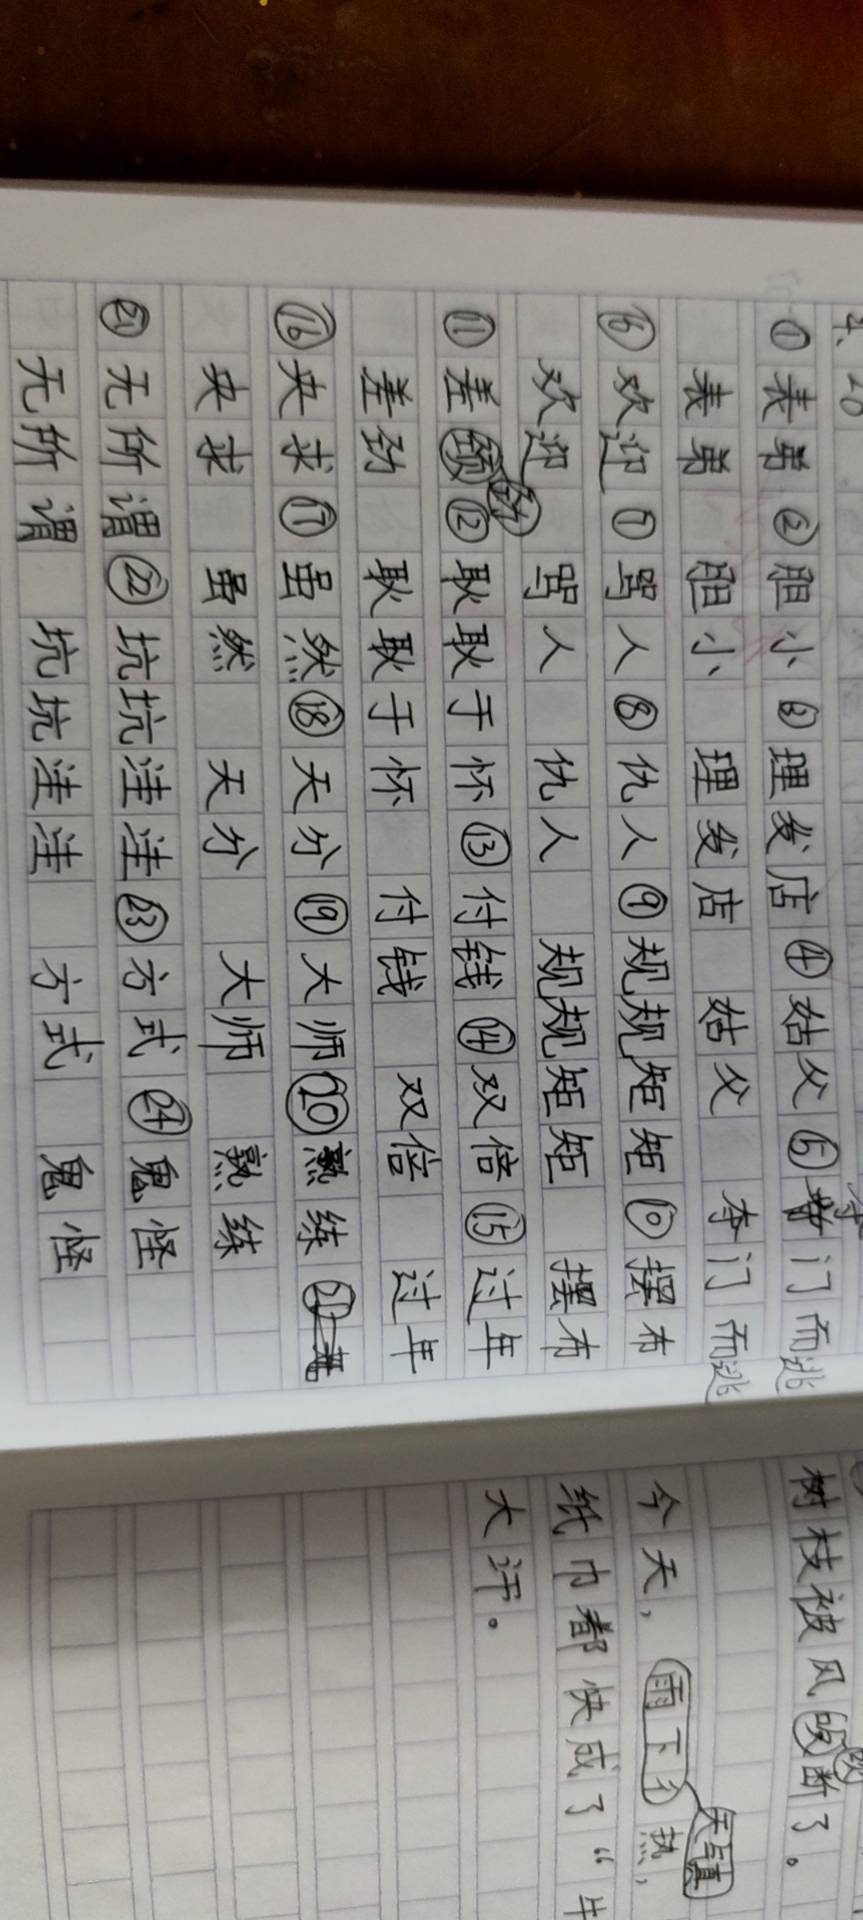 ①表弟②胆小③理发店④姑父⑤夺门而逃
表弟 胆小 理发店 姑父 夺门而逃
⑥欢迎⑦骂人⑧仇人⑨规规矩矩⑩摆布
欢迎 骂人 仇人 规规矩矩 摆布
⑪差劲⑫耿耿于怀⑬付钱⑭双倍⑮过年
差劲 耿耿于怀 付钱 双倍 过年
⑯央求⑰虽然⑱天分⑲大师⑳熟练
央求 虽然 天分 大师 熟练
㉑无所谓㉒坑坑洼洼㉓方式㉔鬼怪
无所谓 坑坑洼洼 方式 鬼怪
树枝被风吹断了。
今天，天气真热，
纸巾都快成了“牛
大汗。